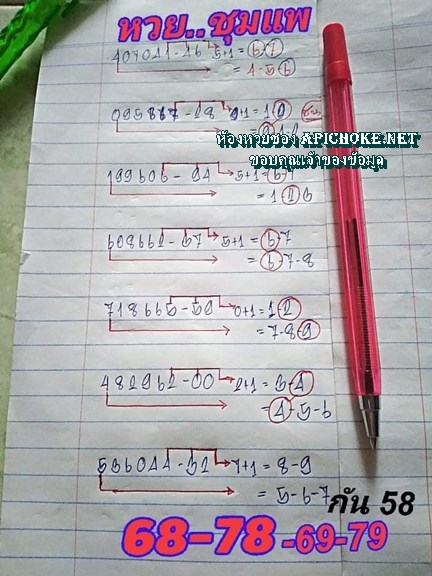 หวย..ชุมแพ
407041-46 5+1=6-7
=4-5-6
095867-08 9+1=1 0
ห้องหวยซอง APICHOKE.NET
ขอบคุณเจ้าของข้อมูล
199606-94 5+1=6-7
=1-2-6
608662-57 5+1=6-7
=6-7-8
718665-59 0+1=1-2
=7-8-9
482962-00 2+1=3-4
=4-5-6
536044-32 7+1=8-9
=5-6-7
กัน 58
68-78-69-79